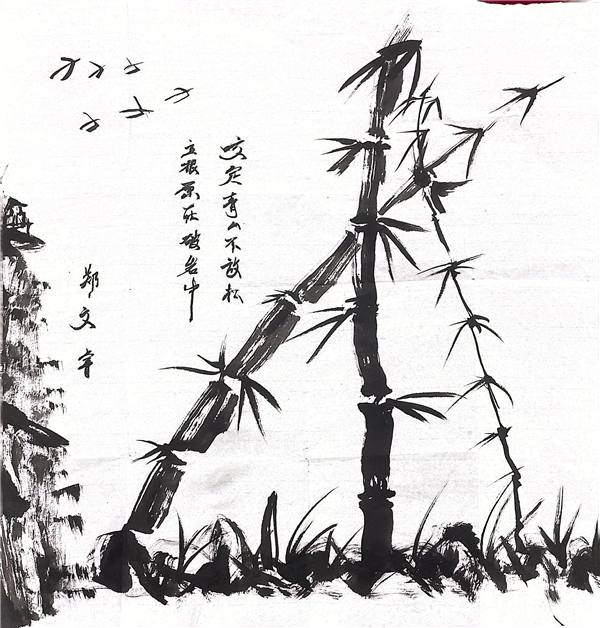 咬定青山不放松
立根原在破岩中
郑文